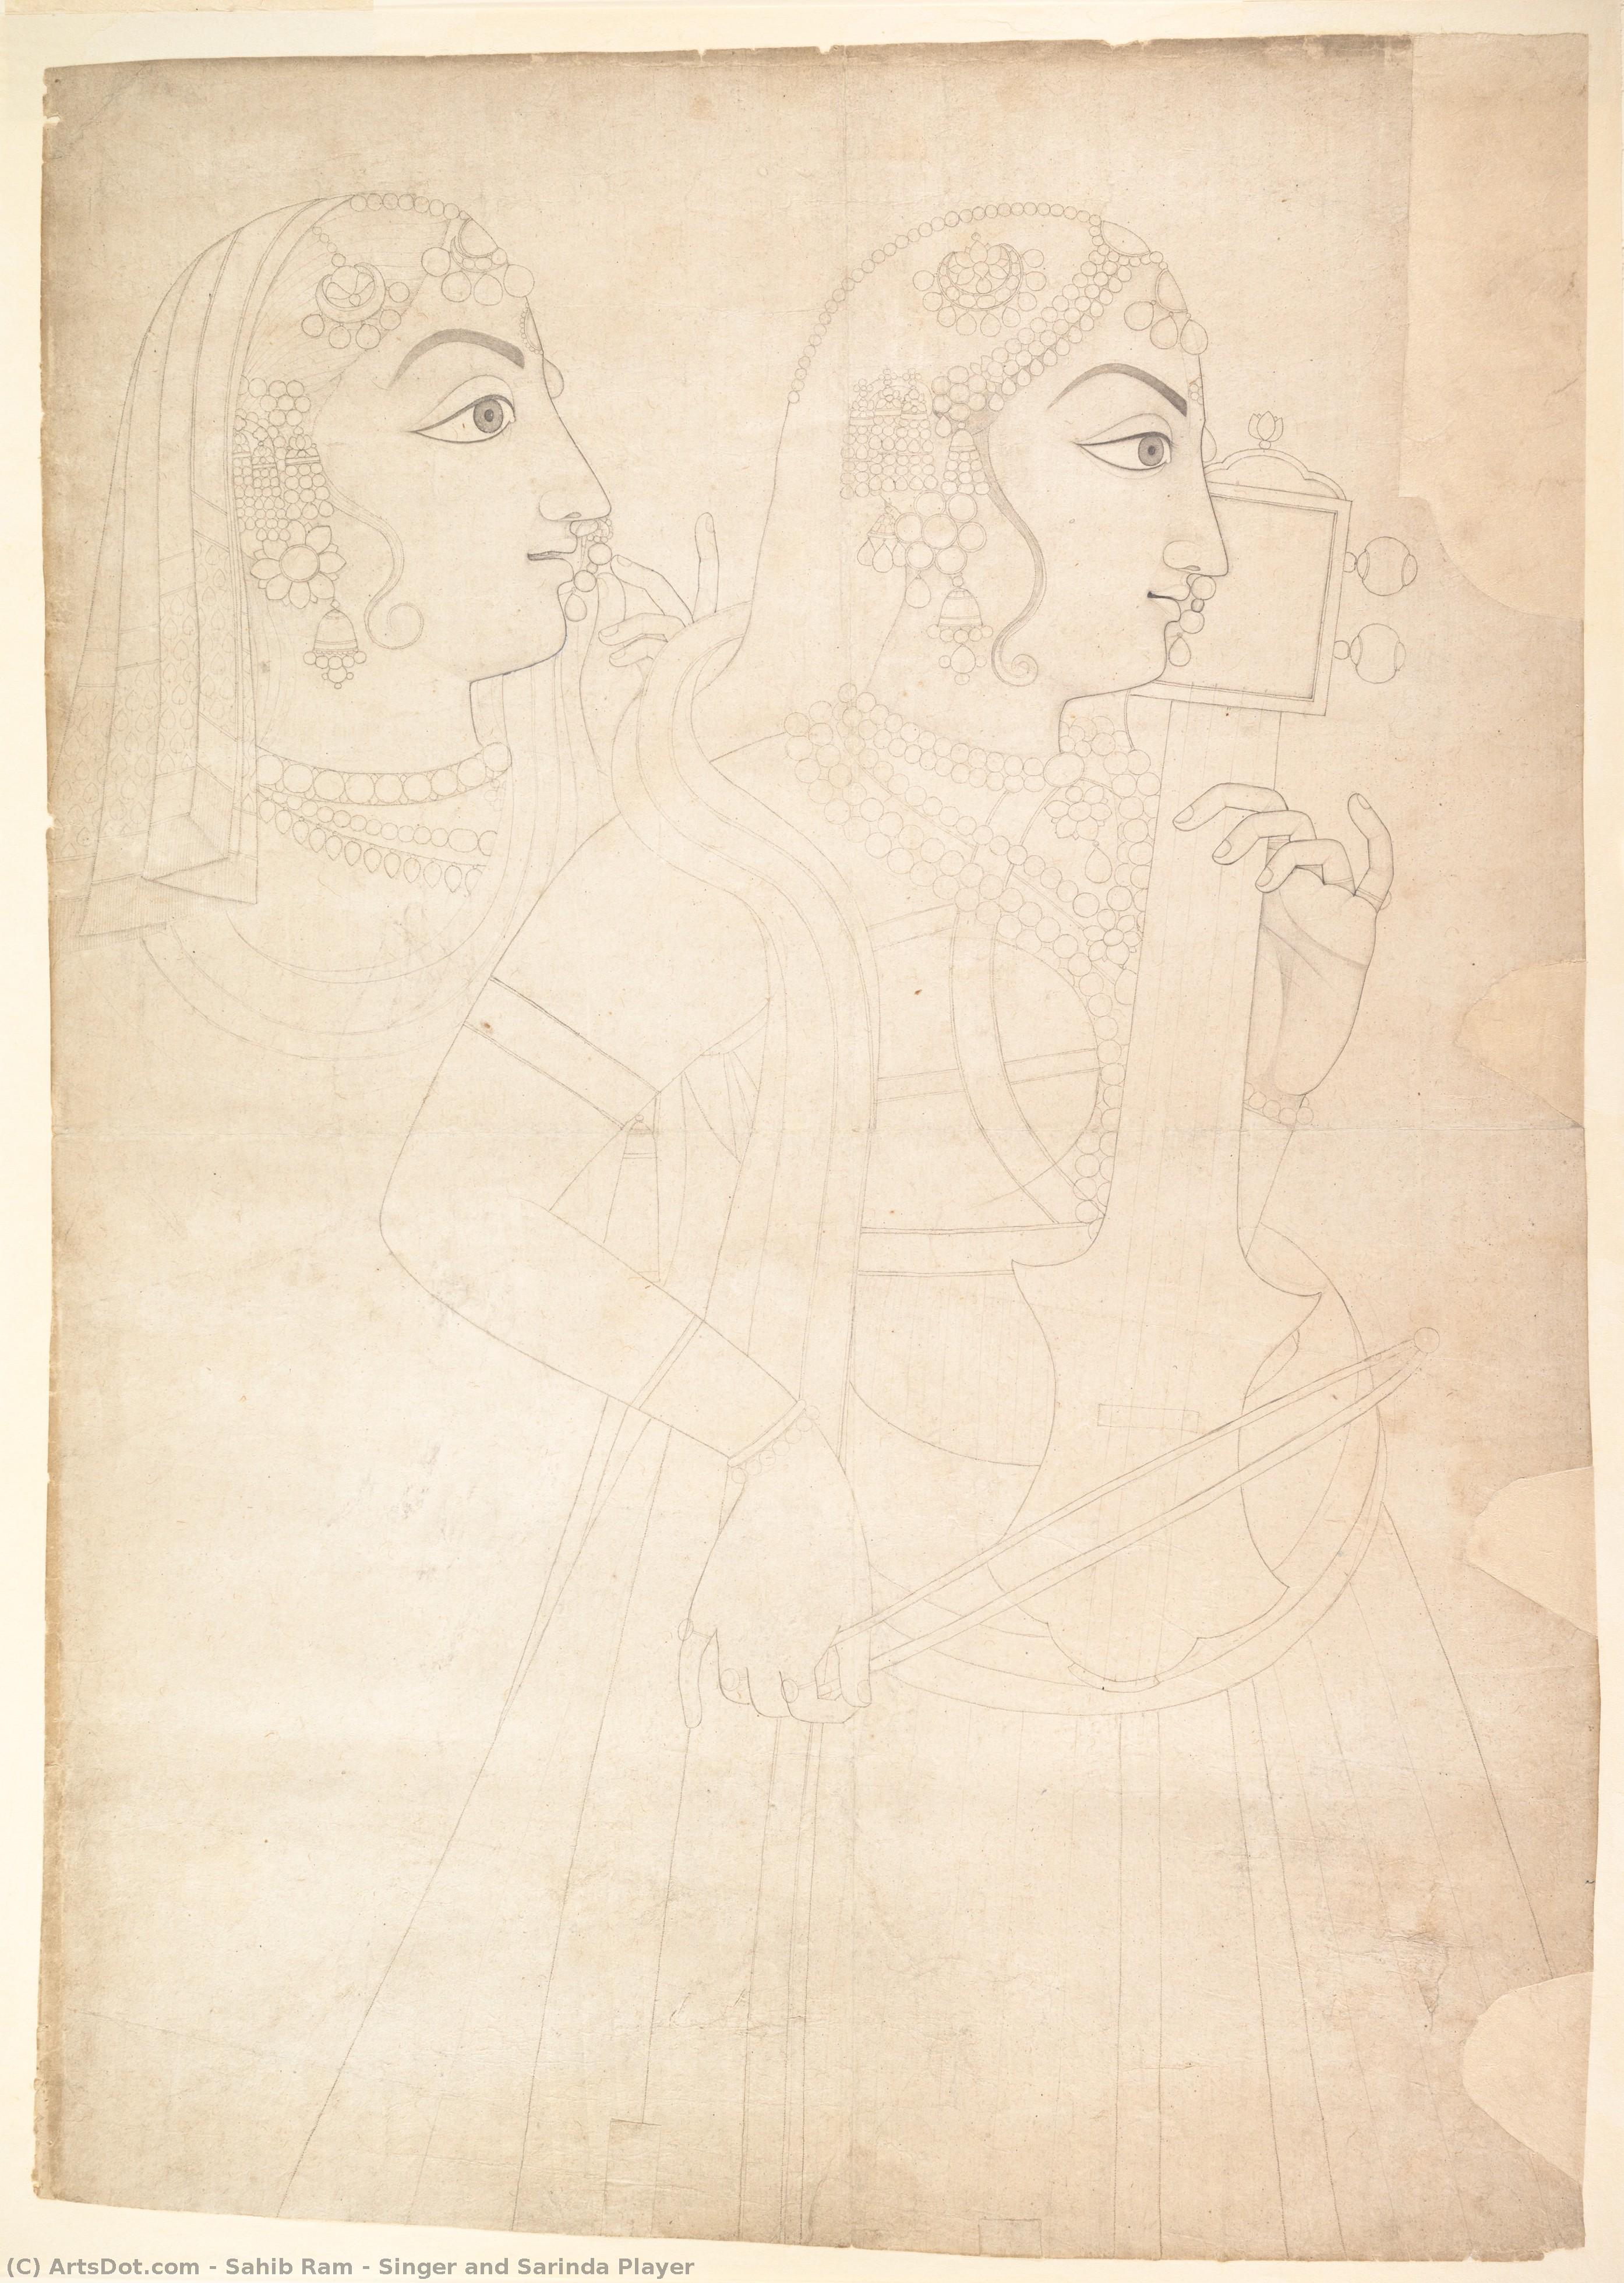 (C) ArtsDot.com - Sahib Ram - Singer and Sarinda Player